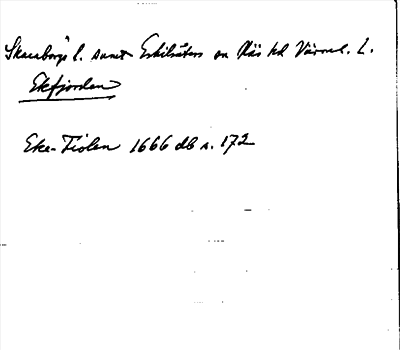 Skaraborgs l. samt Eskilsäters sn Näs hd Värml. L.
Ekfjorden
Eke-Fiolen 1666 db s. 172